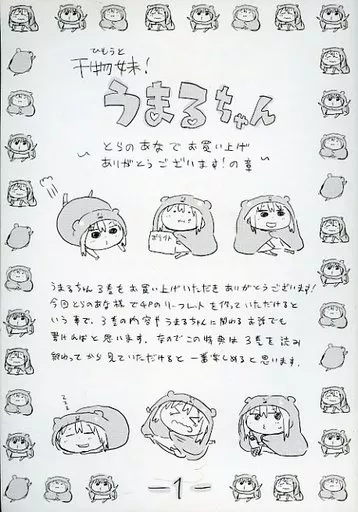 ひもうと
干物妹!
うまるちゃん
とらのあなでお買い上げ
〜ありがとうございます!の章〜
ポテイト
うまるちゃん3巻をお買い上げいただきありがとうございます!
今回とらのあな様で4Pのリーフレットを作っていただけると
いう事で、3巻の内容やうまるちゃんに関わるお話でも
書ければと思います。なのでこの特典は3巻を読み
終わってから見ていただけると一番楽しめると思います。
zzz
-1-